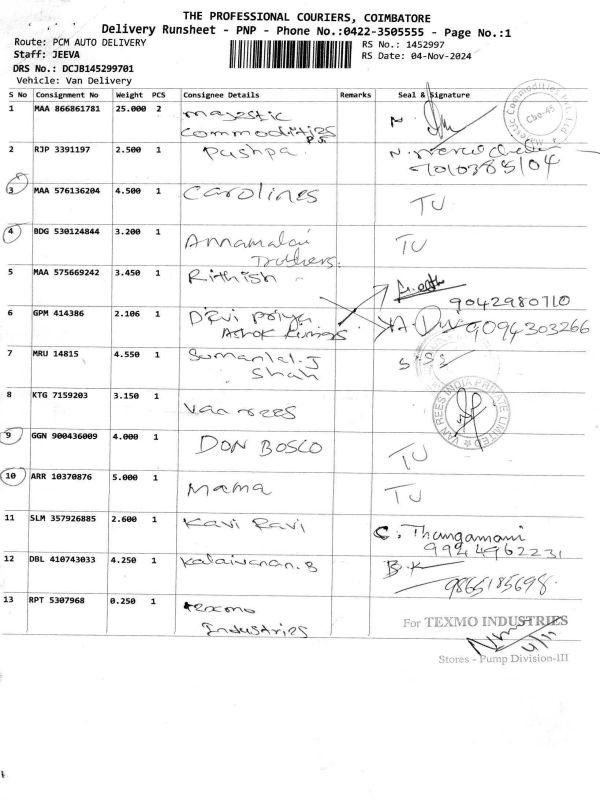 THE PROFESSIONAL COURIERS, COIMBATORE
Delivery Runsheet - PNP - Phone No.:0422-3505555 - Page No.:1
Route: PCM AUTO DELIVERY
RS No.: 1452997
Staff: JEEVA
RS Date: 04-Nov-2024
DRS No.: DCJB145299701
Vehicle: Van Delivery
S No Consignment No Weight PCS Consignee Details Remarks Seal & Signature
1 MAA 866861781 25.000 2 Majestic
Commodities
2 RJP 3391197 2.500 1 Pushpa
3 MAA 576136204 4.500 1 Carolines TU
4 BDG 530124844 3.200 1 Annamalai TU
5 MAA 575669242 3.450 1 Rithish
9042980710
6 GPM 414386 2.106 1 Devi Priya 9094303266
Ashok
7 MRU 14815 4.550 1 Sumanlal.J
Shah
8 KTG 7159203 3.150 1 Van rees
VAN REES INDIA PRIVATE LIMITED
9 GGN 900436009 4.000 1 DON BOSCO TU
10 ARR 10370876 5.000 1 Mama TU
11 SLM 357926885 2.600 1 Kavi Ravi C. Thangamani
9944962231
12 DBL 410743033 4.250 1 Kalaivanan.B B.K
9865185698
13 RPT 5307968 0.250 1 texmo
Industries
For TEXMO INDUSTRIES
Stores - Pump Division-III